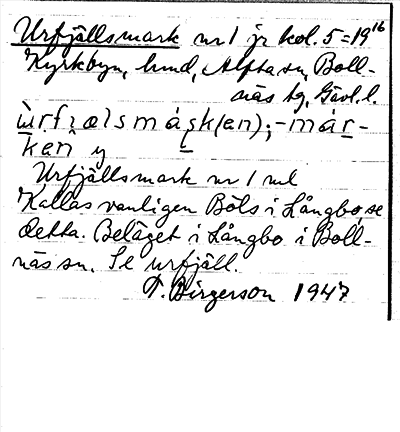 Urfjällsmark nr 1 jr kol. 5=19¹⁶
Kyrkbyn, hmd, Alfta sn, Boll-
näs tg, Gävl. l.
ùrfjælsmárk(en); -már-
ken y
Urfjällsmark nr 1 ml
Kallas vanligen Böls i Långbo, se
detta. Beläget i Långbo i Boll-
näs sn. Se urfjäll.
T. Birgerson 1947